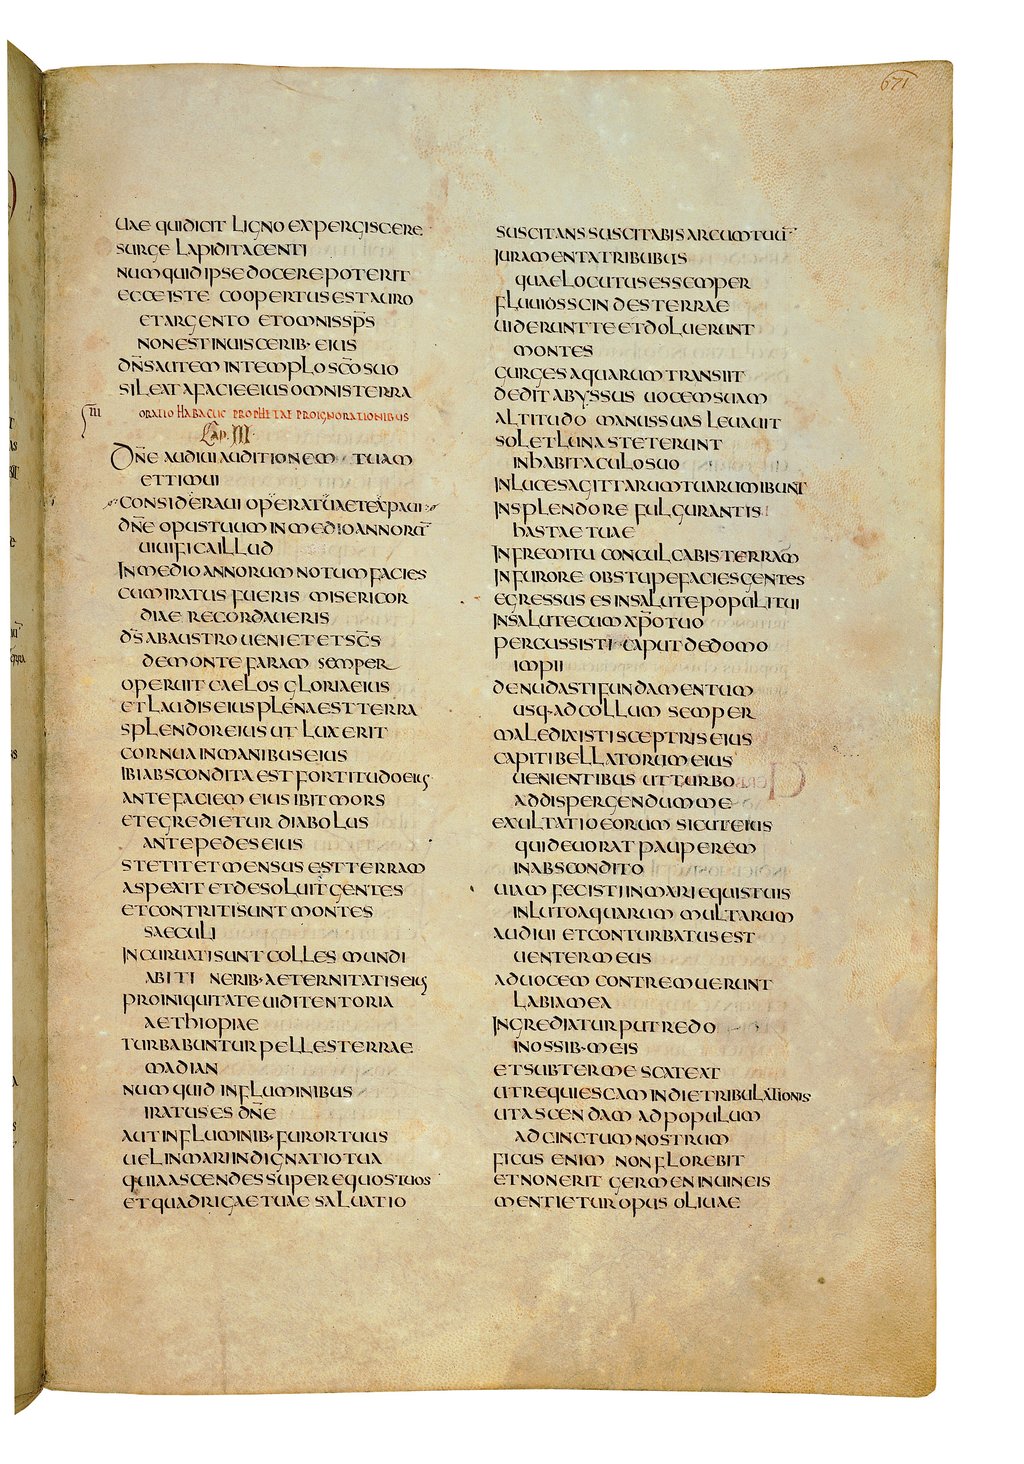 671
UAE QUIDICIT LIGNO EXPERGISCERE
SURGE LAPIDI TACENTI
NUMQUID IPSE DOCERE POTERIT
ECCE ISTE COOPERTUS EST AURO
ET ARGENTO ET OMNIS SPS̄
NON EST IN UISCERIB· EIUS
DN̄S AUTEM IN TEMPLO SC̄O SUO
SILEAT A FACIE EIUS OMNIS TERRA
III ORATIO HABACUC PROPHETAE PRO IGNORATIONIBUS
Cap. III.
DN̄E AUDIUI AUDITIONEM TUAM
ET TIMUI
CONSIDERAUI OPERA TUA ET EXPAUI
DN̄E OPUS TUUM IN MEDIO ANNORŪ
UIUIFICA ILLUD
IN MEDIO ANNORUM NOTUM FACIES
CUM IRATUS FUERIS MISERICOR
DIAE RECORDAUERIS
DS̄ AB AUSTRO UENIET ET SC̄S
DE MONTE FARAN SEMPER
OPERUIT CAELOS GLORIA EIUS
ET LAUDIS EIUS PLENA EST TERRA
SPLENDOR EIUS UT LUX ERIT
CORNUA IN MANIBUS EIUS
IBI ABSCONDITA EST FORTITUDO EIUS
ANTE FACIEM EIUS IBIT MORS
ET EGREDIETUR DIABOLUS
ANTE PEDES EIUS
STETIT ET MENSUS EST TERRAM
ASPEXIT ET DESOLUIT GENTES
ET CONTRITI SUNT MONTES
SAECULI
INCURUATI SUNT COLLES MUNDI
AB ITINERIB· AETERNITATIS EIUS
PRO INIQUITATE UIDI TENTORIA
AETHIOPIAE
TURBABUNTUR PELLES TERRAE
MADIAN
NUMQUID IN FLUMINIBUS
IRATUS ES DN̄E
AUT IN FLUMINIB· FUROR TUUS
UEL IN MARI INDIGNATIO TUA
QUIA ASCENDES SUPER EQUOS TUOS
ET QUADRIGAE TUAE SALUATIO
SUSCITANS SUSCITABIS ARCUM TUŪ
IURAMENTA TRIBUBUS
QUAE LOCUTUS ES SEMPER
FLUUIOS SCINDES TERRAE
UIDERUNT TE ET DOLUERUNT
MONTES
GURGES AQUARUM TRANSIIT
DEDIT ABYSSUS UOCEM SUAM
ALTITUDO MANUS SUAS LEUAUIT
SOL ET LUNA STETERUNT
IN HABITACULO SUO
IN LUCE SAGITTARUM TUARUM IBUNT
IN SPLENDORE FULGURANTIS
HASTAE TUAE
IN FREMITU CONCULCABIS TERRAM
IN FURORE OBSTUPEFACIES GENTES
EGRESSUS ES IN SALUTE POPULI TUI
IN SALUTE CUM XP̄O TUO
PERCUSSISTI CAPUT DE DOMO
IMPII
DENUDASTI FUNDAMENTUM
USQ· AD COLLUM SEMPER
MALEDIXISTI SCEPTRIS EIUS
CAPITI BELLATORUM EIUS
UENIENTIBUS UT TURBO
AD DISPERGENDUM ME
EXULTATIO EORUM SICUT EIUS
QUI DEUORAT PAUPEREM
IN ABSCONDITO
UIAM FECISTI IN MARI EQUIS TUIS
IN LUTO AQUARUM MULTARUM
AUDIUI ET CONTURBATUS EST
UENTER MEUS
AD UOCEM CONTREMUERUNT
LABIA MEA
INGREDIATUR PUTREDO
IN OSSIB· MEIS
ET SUBTER ME SCATEAT
UT REQUIESCAM IN DIE TRIBULATIONIS
UT ASCENDAM AD POPULUM
ADCINCTUM NOSTRUM
FICUS ENIM NON FLOREBIT
ET NON ERIT GERMEN IN UINEIS
MENTIETUR OPUS OLIUAE